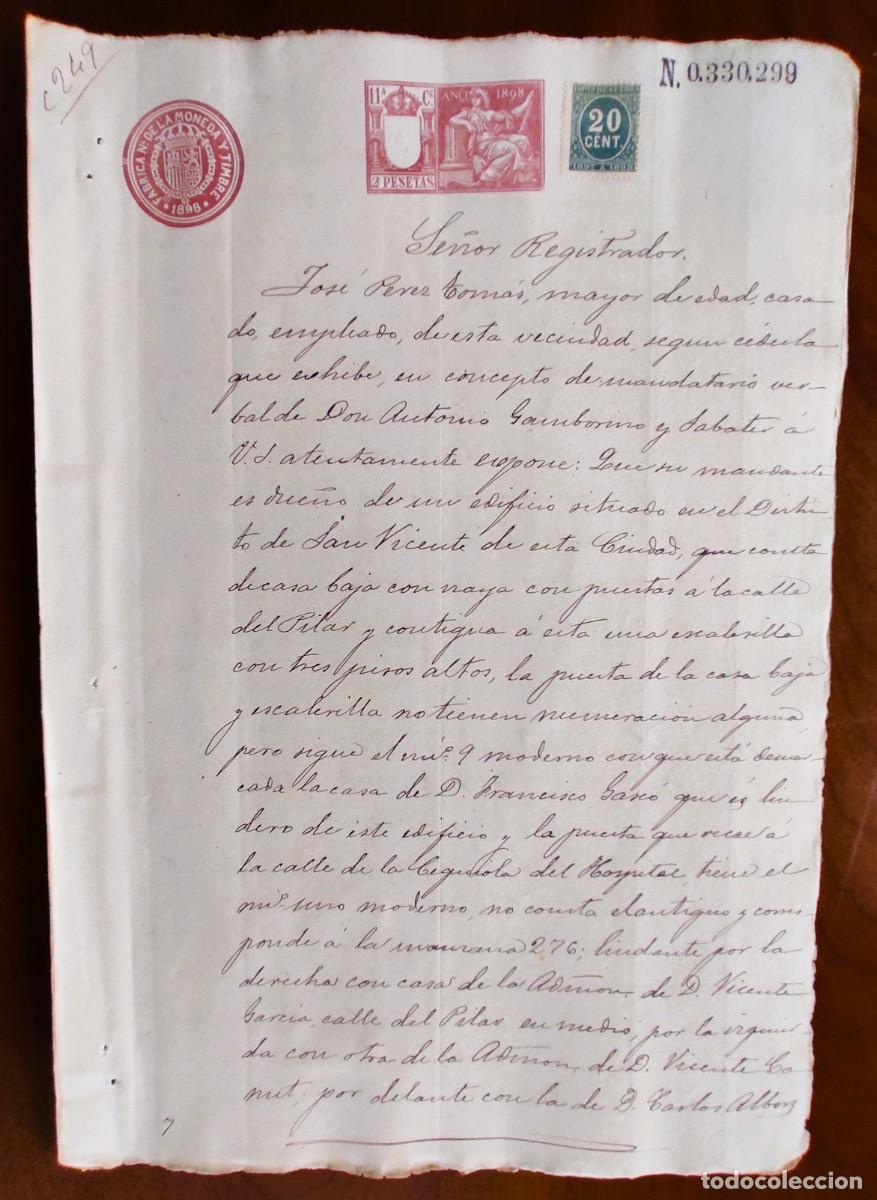 c 249
N. 0.330.299
FÁBRICA NL. DE LA MONEDA Y TIMBRE
· 1898 ·
11ª Cª
AÑO 1898
2 PESETAS
20
CENT.
1897 A 1898
Señor Registrador.
José Perez Tomás, mayor de edad, casa
do, empleado, de esta vecindad, segun cédula
que exhibe, en concepto de mandatario ver-
bal de Don Antonio Gamborino y Sabater á
V.S. atentamente expone: Que su mandante
es dueño de un edificio situado en el Distri-
to de San Vicente de esta Ciudad, que consta
de casa baja con naya con puertas á la calle
del Pilar y contigua á esta una escalerilla
con tres pisos altos, la puerta de la casa baja
y escalerilla no tienen numeración alguna
pero sigue el nº. 9 moderno con que está demar-
cada la casa de D. Francisco Gascó que es lin-
dero de este edificio y la puerta que recae á
la calle de la Cequiola del Hospital, tiene el
nº. uno moderno, no consta el antiguo y corres-
ponde á la manzana 276; lindante por la
derecha con casa de la Admon. de D. Vicente
García, calle del Pilar en medio, por la izquier-
da con otra de la Admon. de D. Vicente Ca-
nut, por delante con la de D. Carlos Albors
7
todocoleccion